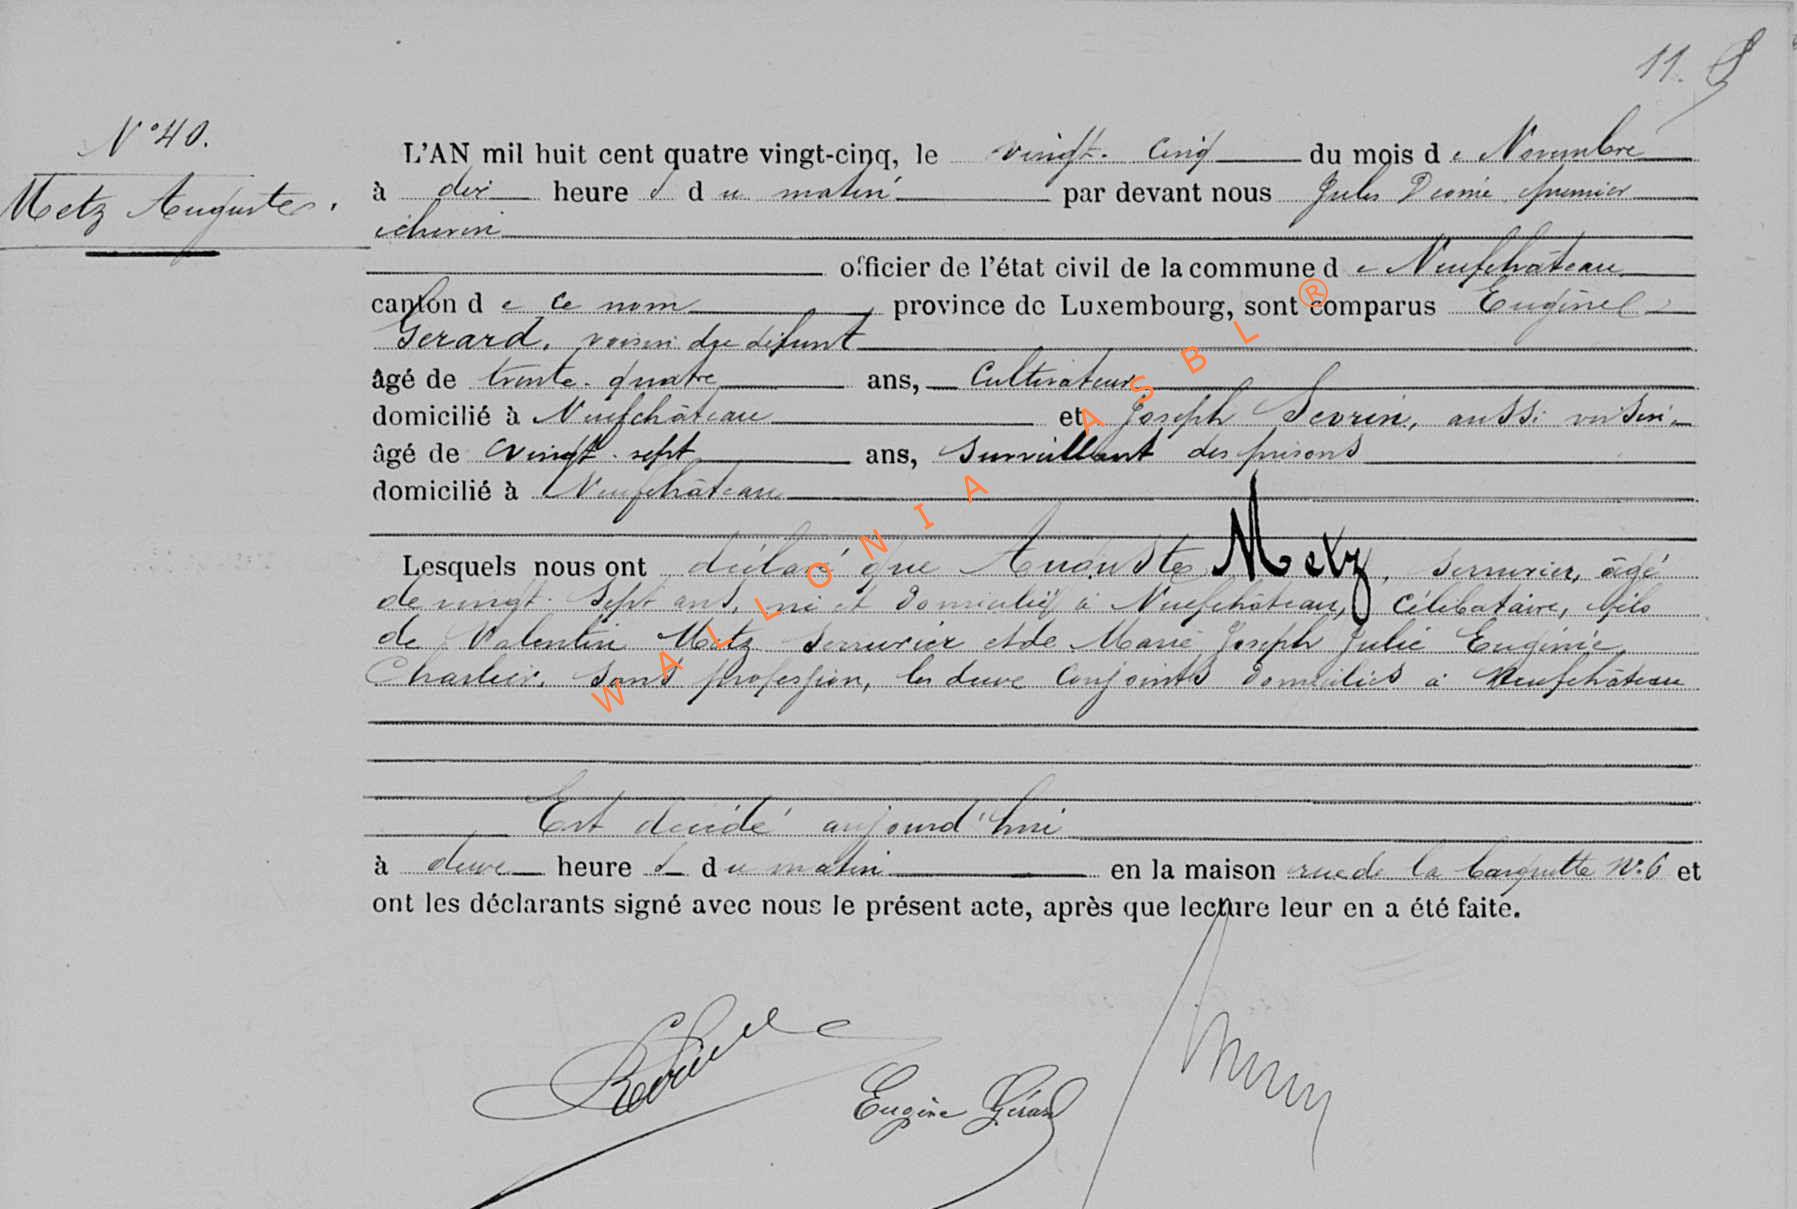 11.
N° 40.
Metz Auguste.
L'AN mil huit cent quatre vingt-cinq, le vingt-cinq du mois de Novembre
à dix heures du matin par devant nous Jules premier
échevin
officier de l'état civil de la commune de Neufchâteau
canton de ce nom province de Luxembourg, sont comparus Eugène
Gerard, voisin du défunt
âgé de trente-quatre ans, Cultivateur
domicilié à Neufchâteau et Joseph Sevrin, aussi voisin
âgé de vingt-sept ans, Surveillant des prisons
domicilié à Neufchâteau
Lesquels nous ont déclaré que Auguste Metz, serrurier, âgé
de vingt-sept ans, né et domicilié à Neufchâteau, célibataire, fils
de Valentin Metz serrurier et de Marie Joseph Julie Eugénie
Charlier, sans profession, les deux conjoints domiciliés à Neufchâteau
Est décédé aujourd'hui
à deux heures du matin en la maison rue de la N° 6 et
ont les déclarants signé avec nous le présent acte, après que lecture leur en a été faite.
Eugène Gérard
WALLONIA ASBL ®